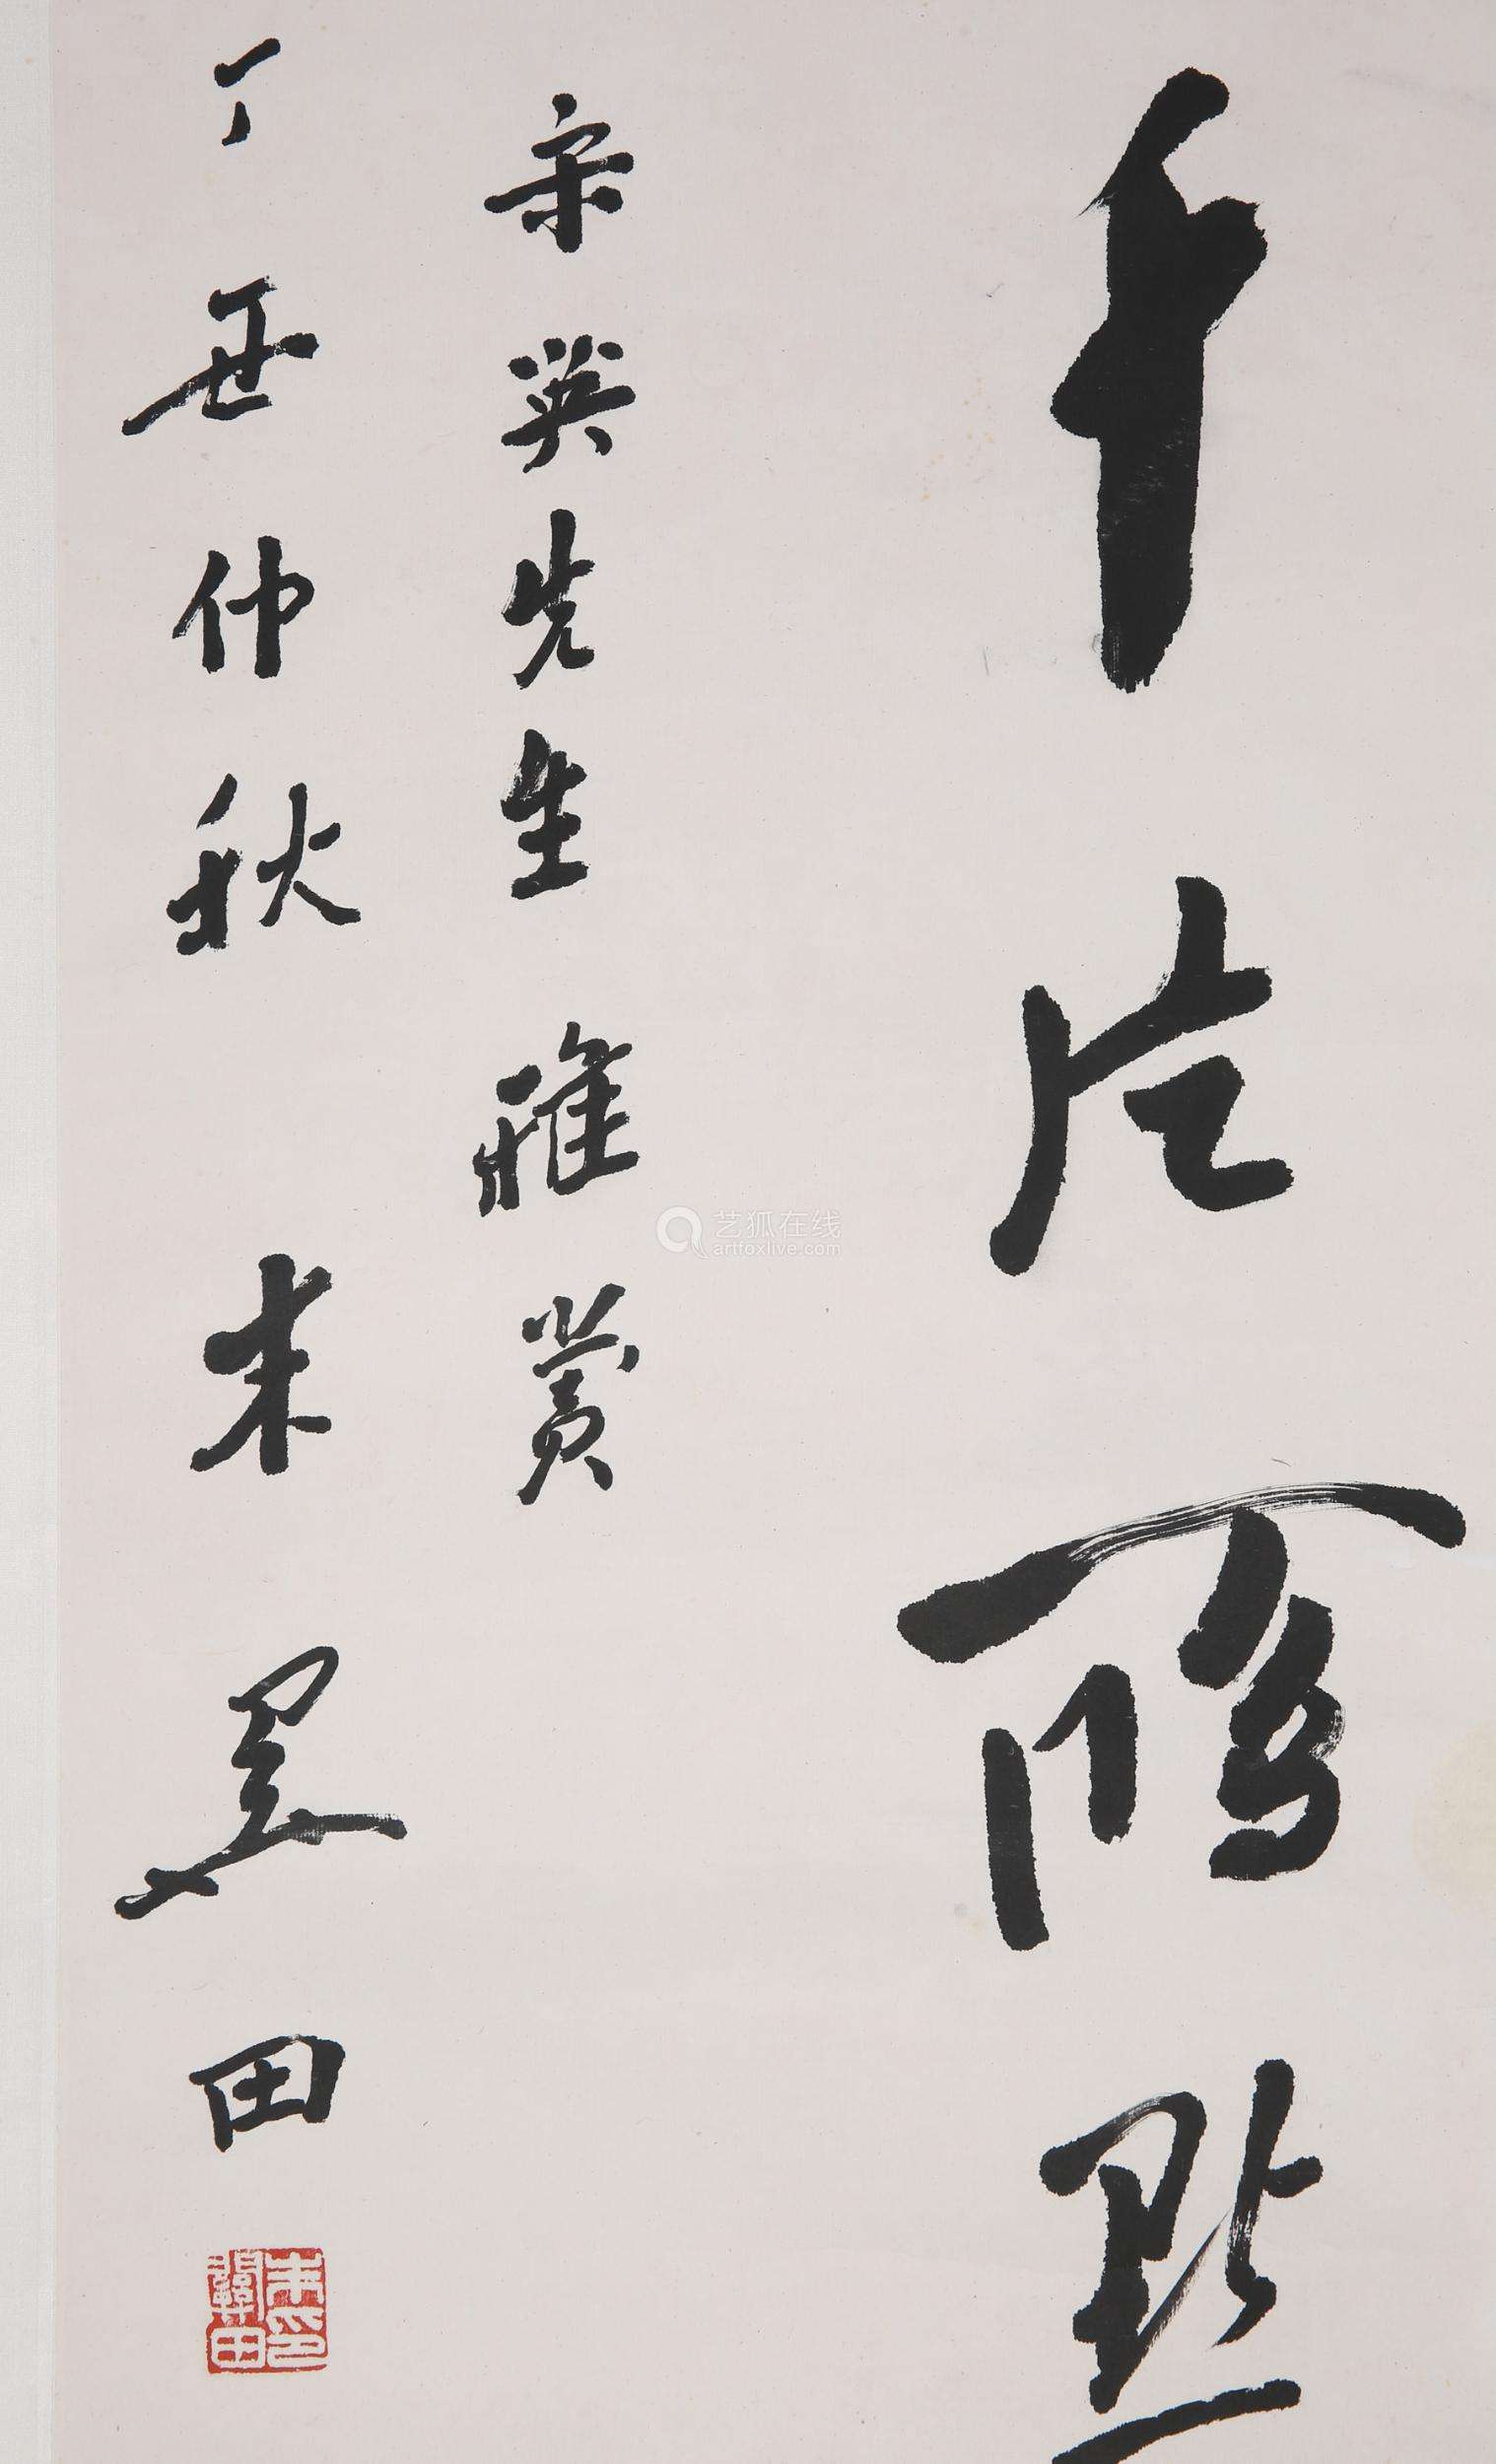 千片鴈點
宗英先生雅賞
丁丑仲秋 朱関田
朱印關田
艺狐在线
artfoxlive.com